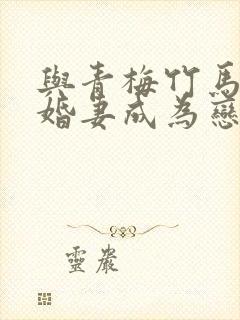 與青梅竹馬
婚妻成為戀
靈巖